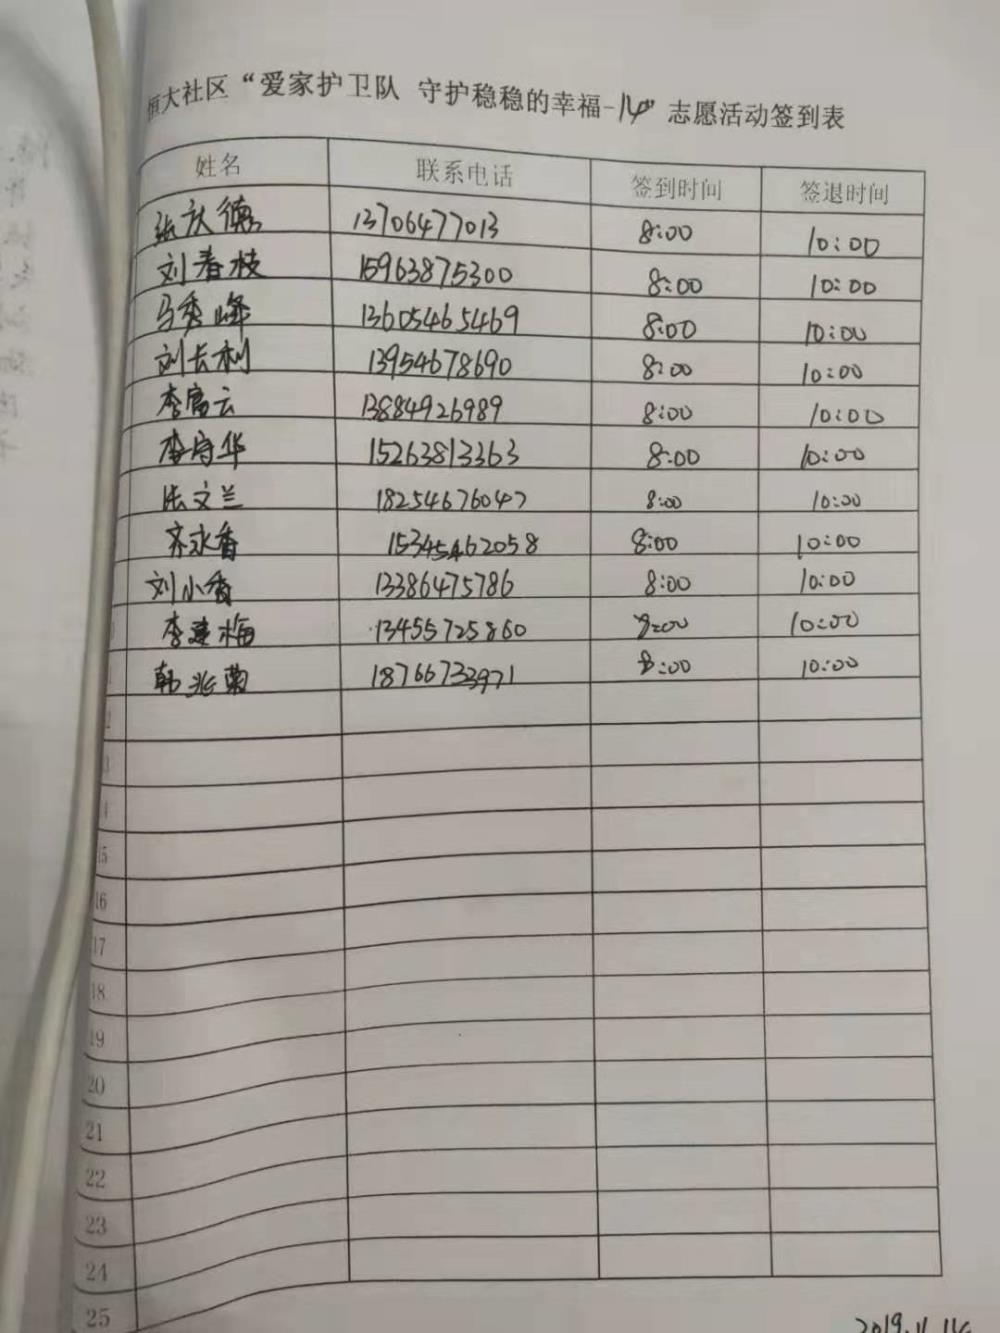 恒大社区“爱家护卫队 守护稳稳的幸福-14”志愿活动签到表
姓名 联系电话 签到时间 签退时间
张庆德 13706477013 8:00 10:00
刘春枝 15963875300 8:00 10:00
马秀峰 13605465469 8:00 10:00
刘长利 13954678690 8:00 10:00
李富云 13884926989 8:00 10:00
李守华 15263813363 8:00 10:00
法文兰 18254676047 8:00 10:00
齐永香 15345462058 8:00 10:00
刘小香 13386475786 8:00 10:00
李建梅 13455725860 8:00 10:00
韩兆菊 18766733971 8:00 10:00
15
16
17
18
19
20
21
22
23
24
25
2019.11.14